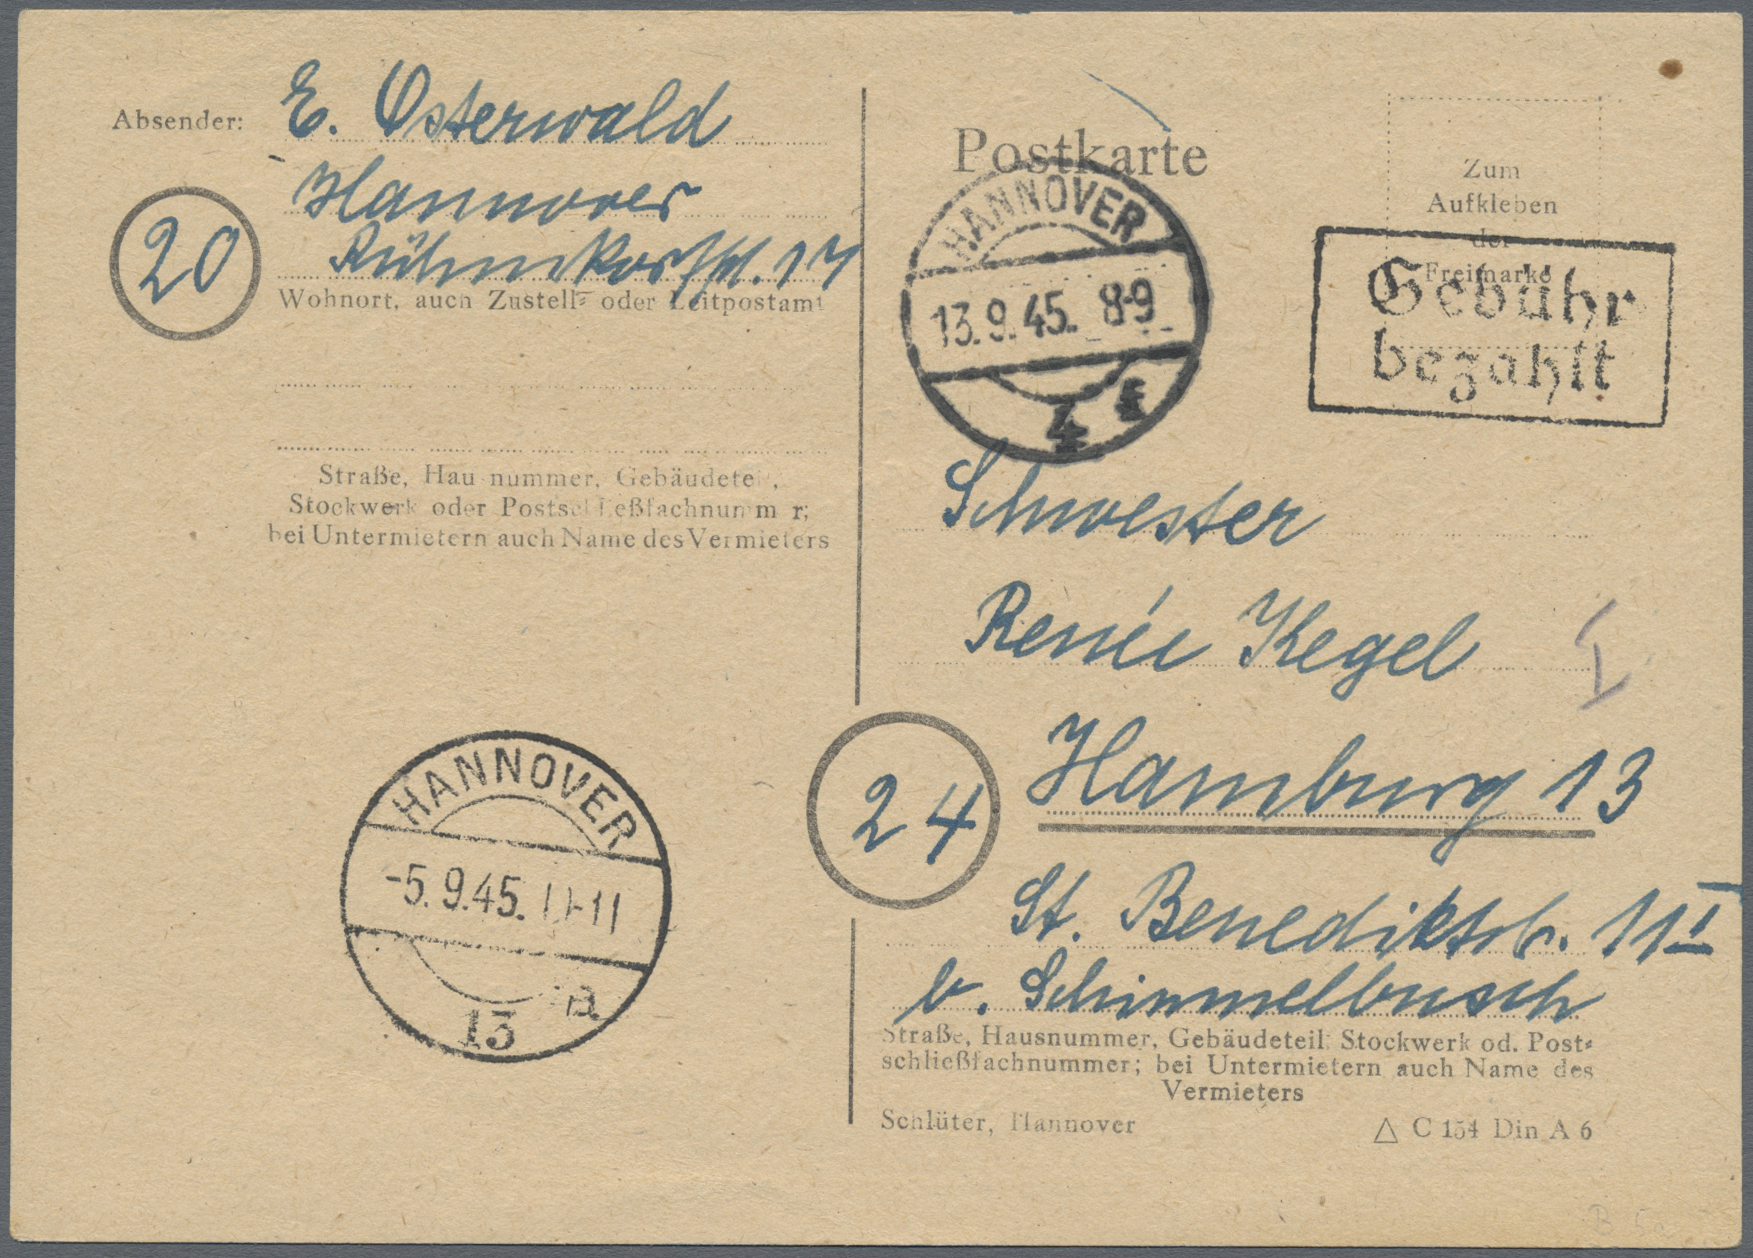 Absender: E. Osterwald
Hannover
20
Rühmkorffpl. 17
Wohnort, auch Zustell- oder Leitpostamt
Straße, Hausnummer, Gebäudeteil,
Stockwerk oder Postschließfachnummer;
bei Untermietern auch Name des Vermieters
HANNOVER
-5.9.45. 10-11
13 a
Postkarte
HANNOVER
13.9.45. 8-9
4
Zum
Aufkleben
der
Freimarke
Gebühr
bezahlt
Schwester
Renée Kegel
I
24
Hamburg 13
St. Benediktstr. 11 I
b. Schimmelbusch
Straße, Hausnummer, Gebäudeteil: Stockwerk od. Post-
schließfachnummer; bei Untermietern auch Name des
Vermieters
Schlüter, Hannover
△ C 154 Din A 6